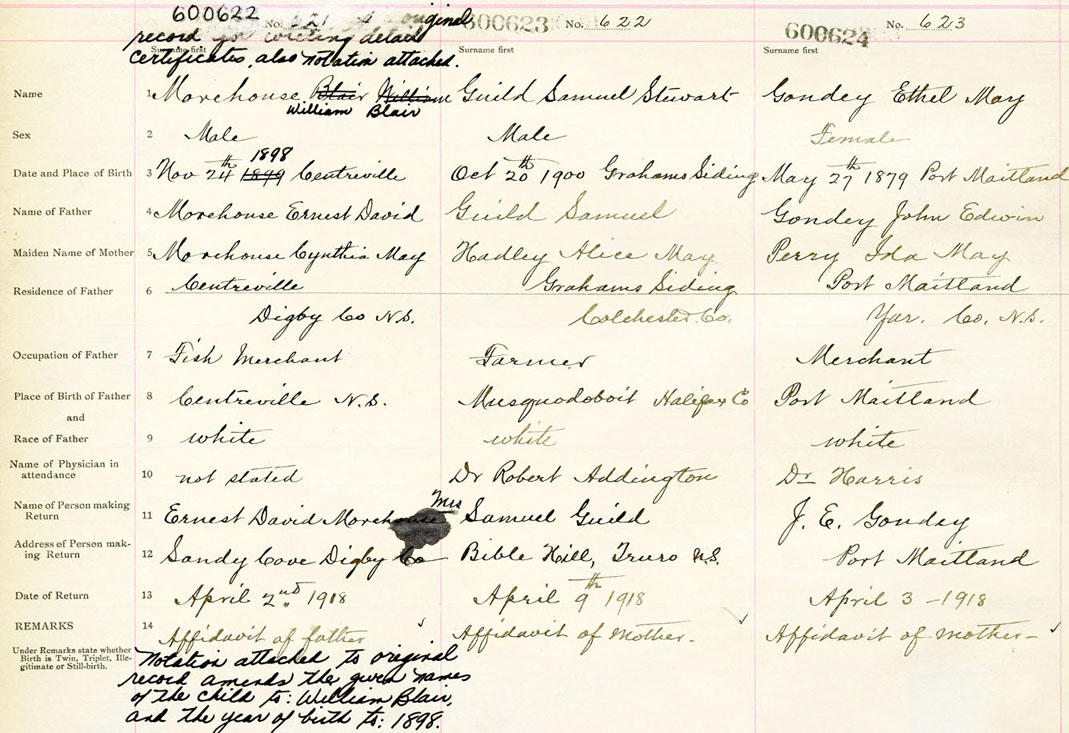 600622 No. 621 original 600623 No. 622 600624 No. 623
record for details
Surname first Surname first Surname first
certificates, also notation attached.
Name 1 Morehouse Blair William Guild Samuel Stewart Gondey Ethel May
William Blair
Sex 2 Male Male Female
1898
Date and Place of Birth 3 Nov 24th 1899 Centreville Oct 20th 1900 Grahams Siding May 27th 1879 Port Maitland
Name of Father 4 Morehouse Ernest David Guild Samuel Gondey John Edwin
Maiden Name of Mother 5 Morehouse Cynthia May Hadley Alice May Perry Ida May
Residence of Father 6 Centreville Grahams Siding Port Maitland
Digby Co N.S. Colchester Co. Yar. Co. N.S.
Occupation of Father 7 Fish Merchant Farmer Merchant
Place of Birth of Father 8 Centreville N.S. Musquodoboit Halifax Co Port Maitland
and
Race of Father 9 white white white
Name of Physician in attendance 10 not stated Dr Robert Addington Dr Harris
Name of Person making Return 11 Ernest David Morehouse Mrs Samuel Guild J. E. Gondey
Address of Person making Return 12 Sandy Cove Digby Co Bible Hill, Truro N.S. Port Maitland
Date of Return 13 April 2nd 1918 April 9th 1918 April 3 - 1918
REMARKS 14 Affidavit of father ✓ Affidavit of Mother - ✓ Affidavit of Mother - ✓
Under Remarks state whether
Birth is Twin, Triplet, Ille-
gitimate or Still-birth.
Notation attached to original
record amends the given names
of the child to: William Blair,
and the year of birth to: 1898.